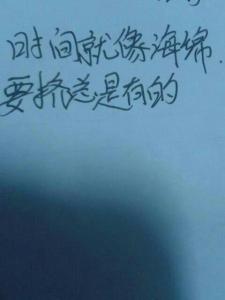 时间就像海绵.
要挤总是有的